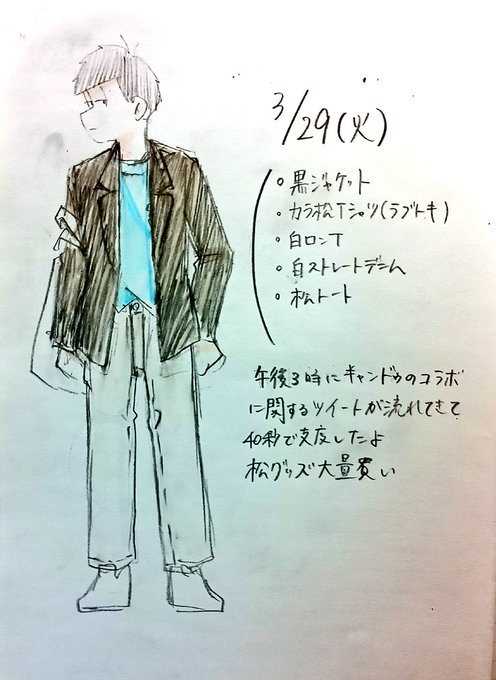 3/29(火)
黒ジャケット
カラ松Tシャツ(ラブトキ)
白ロンT
白ストレートデニム
松トート
午後3時にキャンドゥのコラボ
に関するツイートが流れてきて
40秒で支度したよ
松グッズ大量買い